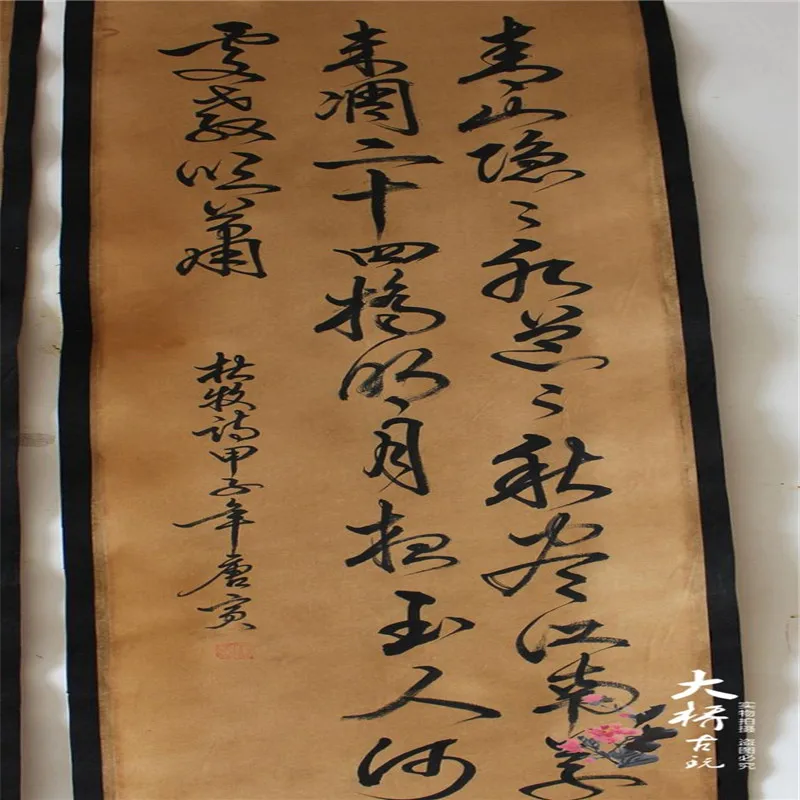 青山隐〻水迢〻秋尽江南草
未凋二十四橋明月夜玉人何
處教吹簫
杜牧詩甲子年唐寅
大桥古玩
实物拍摄 盗图必究